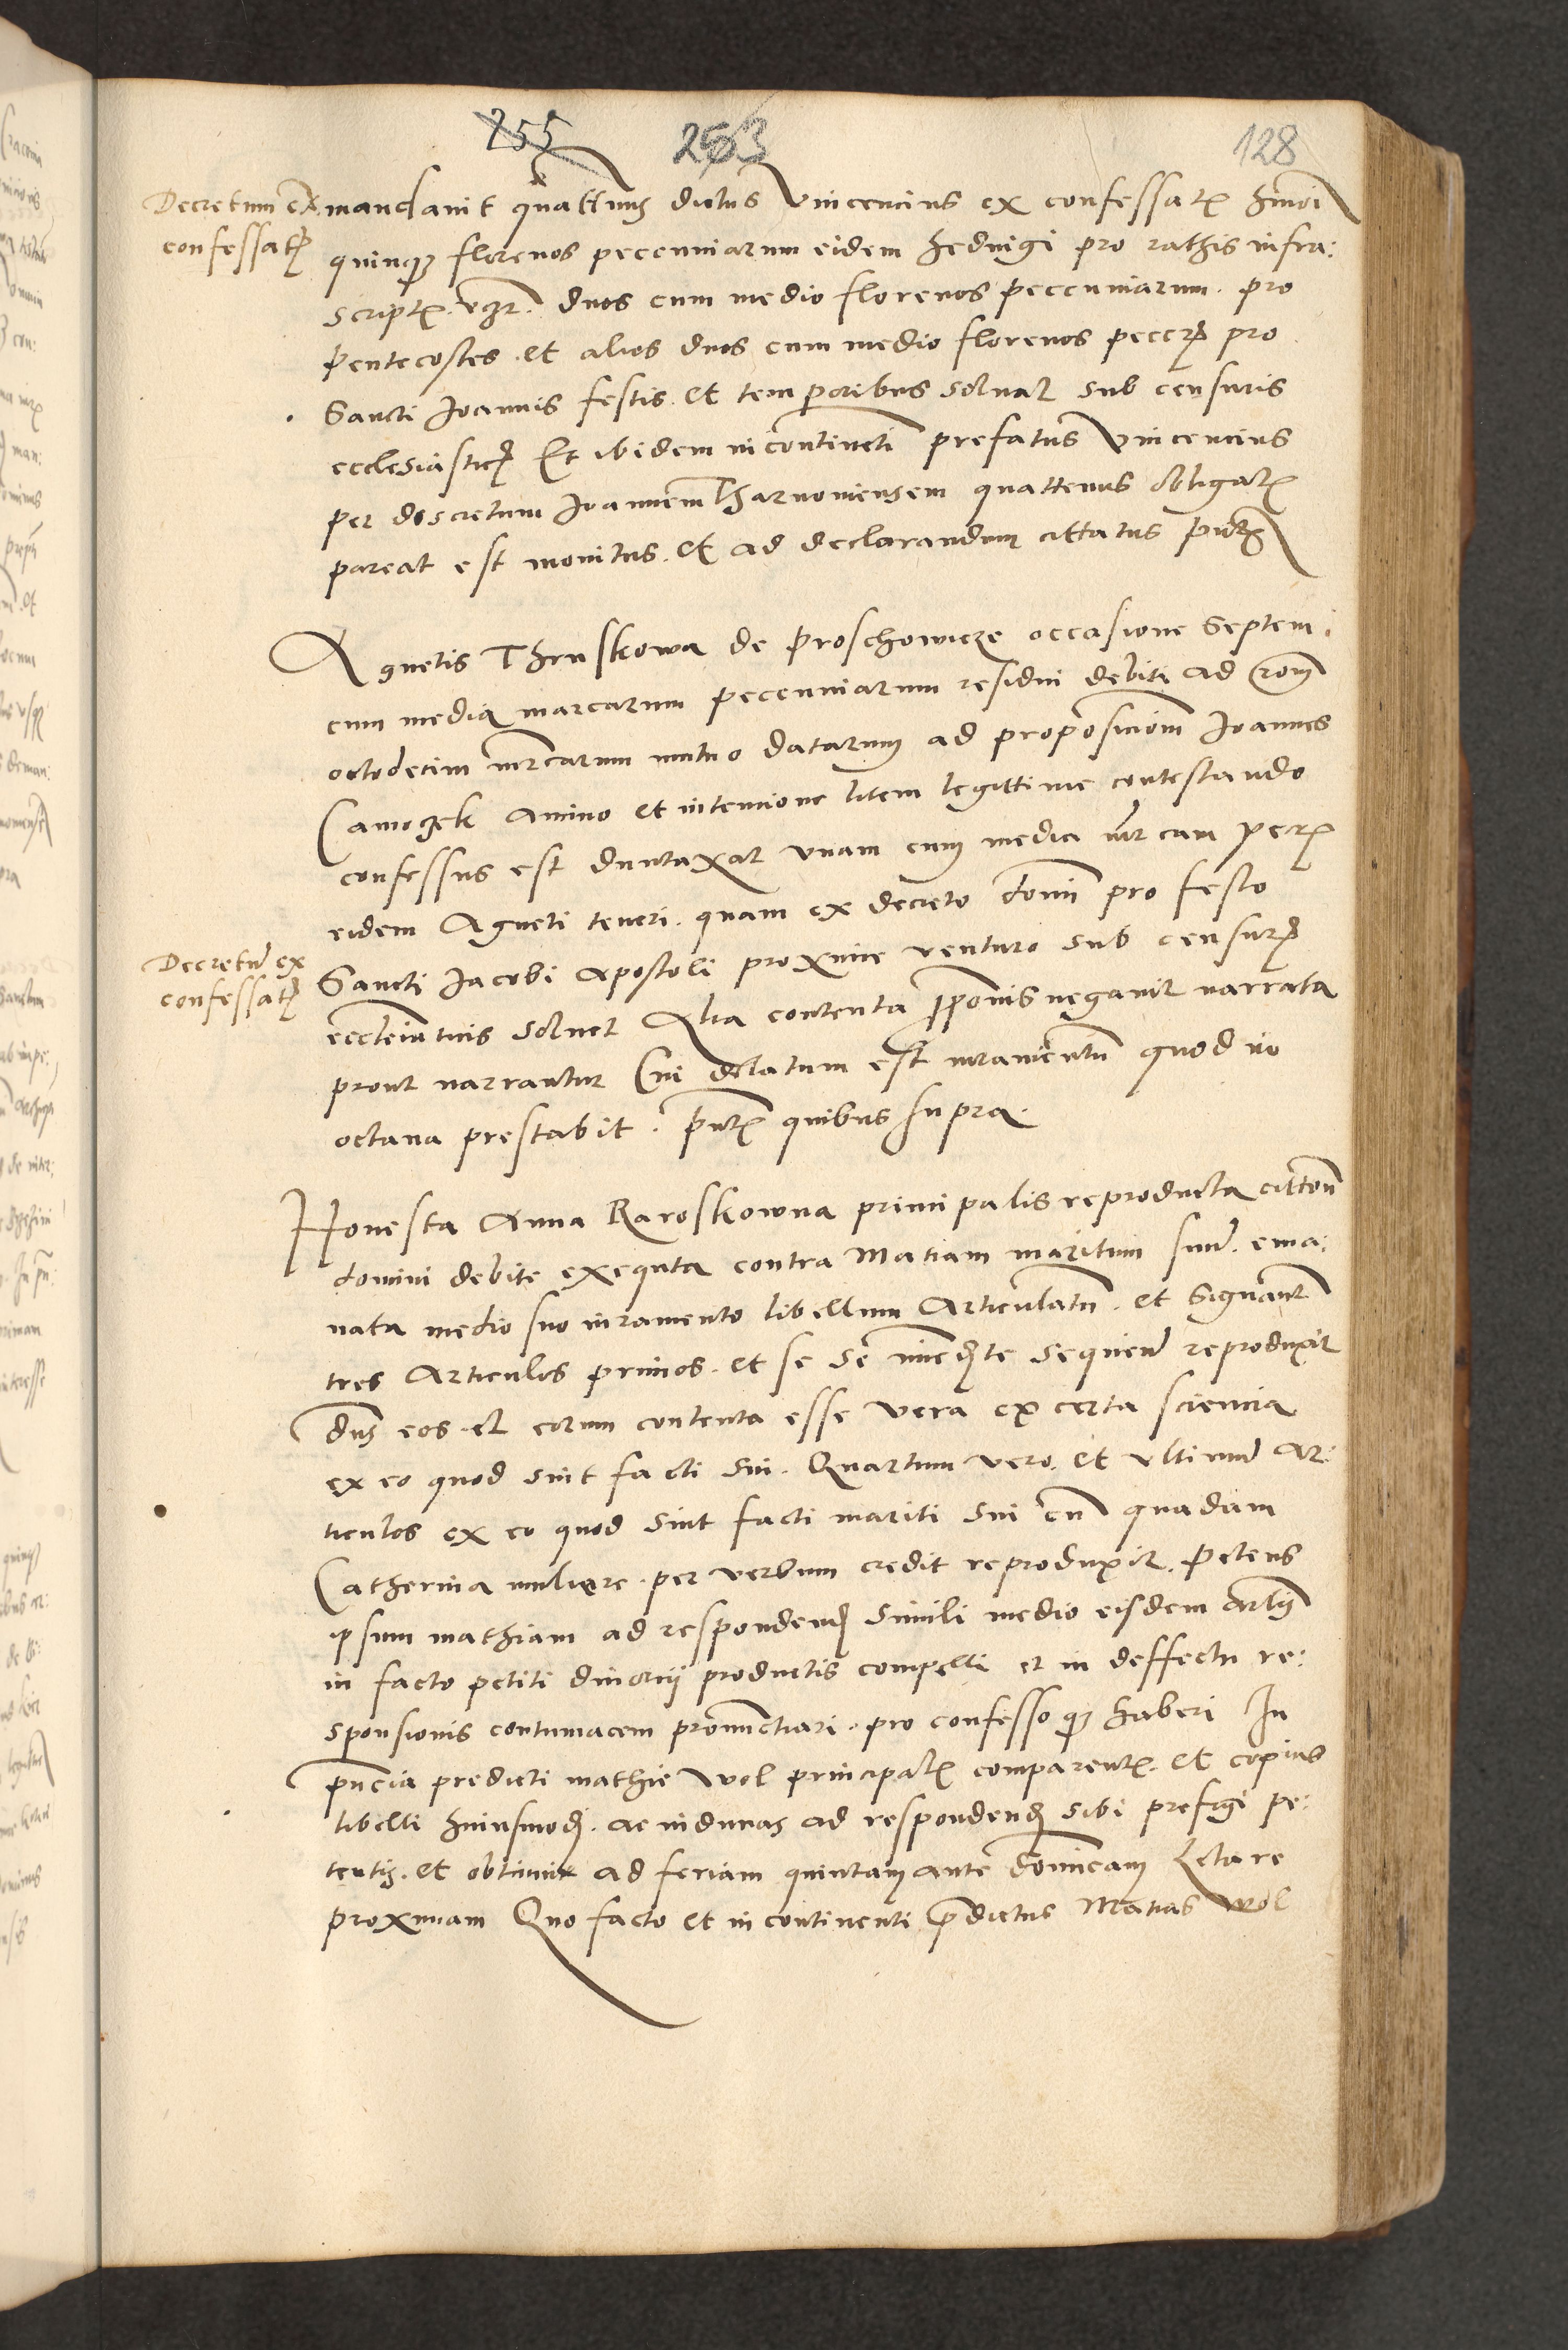 255 253 128
Decretum ex
confessat(is)
mandavit quattenus dictus Vincencius ex confessat(is) h(uius)mo(d)i
quinq(ue) florenos peccuniarum eidem Hedvigi pro rathis infra:
script(is) v(idelicet) duos cum medio florenos peccuniarum pro
Pentecostes et alios duos cum medio florenos pecc(uniarum) pro
Sancti Joannis festis et temporibus solvat sub censuris
ecclesiastic(is) Et ibidem incontine(n)ti prefatus Vincencius
per discretum Joannem Tharnoviensem quattenus obligat(is)
pareat est monitus et ad declarandum cittatus p(rese)nt(ibus)
Agnetis Thruskowa de Proschowicze occasione Septem
cum media marcarum peccuniarum residui debiti ad r(ati)o(ne)m
octodecim m(a)rcarum mutuo datarum ad proposicione(m) Joannes
Camoczek animo et intencione litem legittime contestando
confessus est duntaxat unam cum media m(a)rcam pec(uniarum)
eidem Agneti teneri quam ex decreto domi(ni) pro festo
Decretu(m) ex
confessat(is)
Sancti Jacobi apostoli proxime venturo sub censur(is)
eccl(es)iasticis solvet Alia contenta p(ro)po(sicio)nis negavit narrata
prout narrantur Cui delatum est iuramentu(m) quod in
octava prestabit p(rese)nt(ibus) quibus supra
Honesta Anna Raroskowna principalis reproducta citt(aci)o(n)e
domini debite exequta contra Matiam maritum suu(m) ema:
nata medio suo iuramento libellum Articulatu(m) et signant(er)
tres Articulos primos et se se i(m)med(ia)te sequen(tem) reproduxit
d(ice)ns eos et eorum contenta esse vera ex certa sciencia
ex eo quod sint facti sui Quartum vero et ultimu(m) Ar:
ticulos ex eo quod sint facti mariti sui cu(m) quadam
Catherina muliere per verbum credit reproduxit Petens
ipsum Mathiam ad respondend(um) simili medio eisdem Art(icu)lis
in facto petiti divorcii productis compelli et in deffectu re:
sponsionis contumacem pronu(n)ctiari pro confesso q(ue) haberi In
p(rese)ncia predicti Mathie Wol principal(is) comparent(is) et copias
libelli huiusmod(i) ac inducias ad respondend(um) sibi prefigi pe:
tentis et obtinuit ad feriam quintam ante do(m)inicam Letare
proximam Quo facto et in continenti p(re)dictus Matias Wol